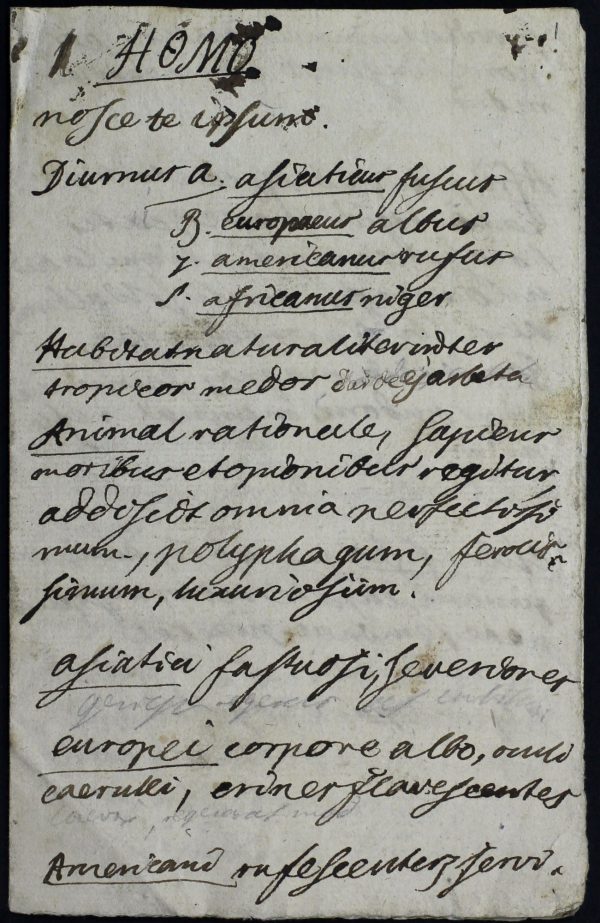 1 HOMO
nosce te ipsum.
Diurnus α. asiaticus fuscus
β. europaeus albus
γ. americanus rufus
δ. africanus niger
Habitat naturaliter inter
tropicos medos
Animal rationale, sapiens
moribus et opionibus regitur
addiscit omnia perfectissi
mum, polyphagum, ferocis-
simum, luxuriosum.
asiatici fastuosi, severiores
europei corpore albo, oculi
caerulei, crines flavescentes
Americani rufescentes, servi.